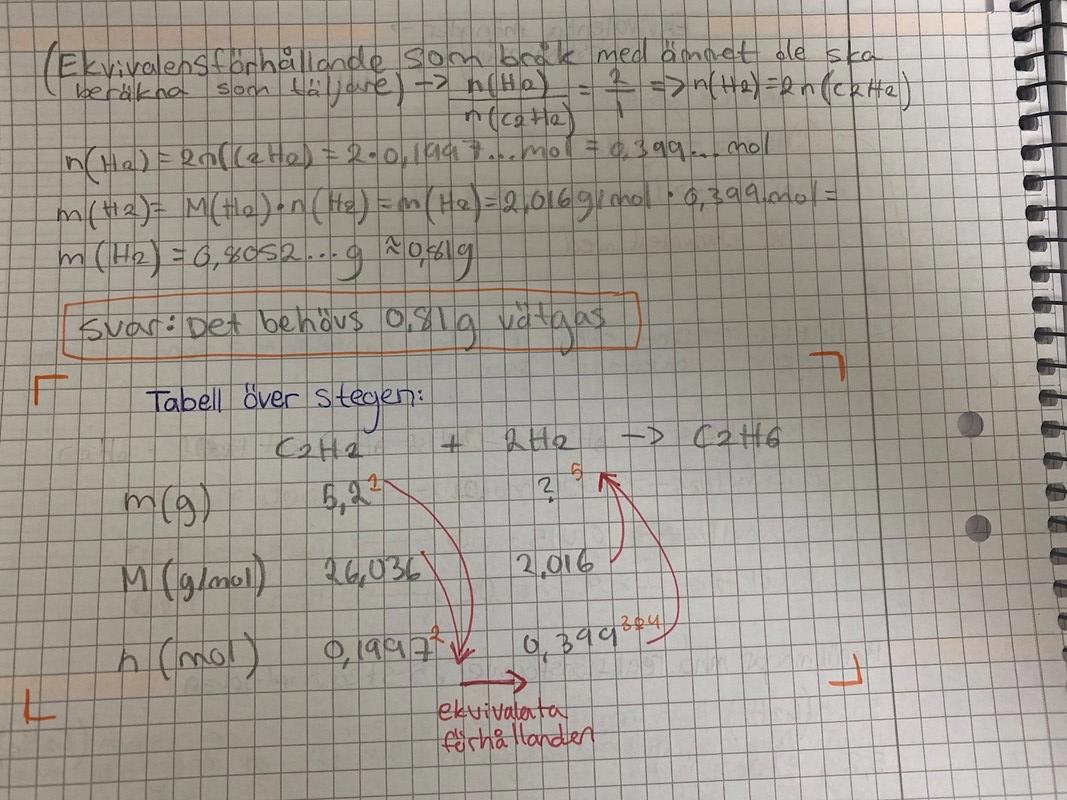 (Ekvivalensförhållande som bråk med ämnet de ska
beräkna som täljare) → n(H2)/n(C2H2) = 2/1 => n(H2)=2n(C2H2)
n(H2) = 2n(C2H2) = 2·0,1997...mol = 0,399...mol
m(H2)= M(H2)·n(H2)=m(H2)=2,016g/mol · 0,399mol =
m(H2) = 0,8052...g ≈0,81g
Svar: Det behövs 0,81g vätgas
Tabell över stegen:
C2H2 + 2H2 -> C2H6
m(g) 5,2¹ ? ⁵
M(g/mol) 26,036 2,016
n(mol) 0,1997² 0,399³⁰⁴
ekvivalenta
förhållanden